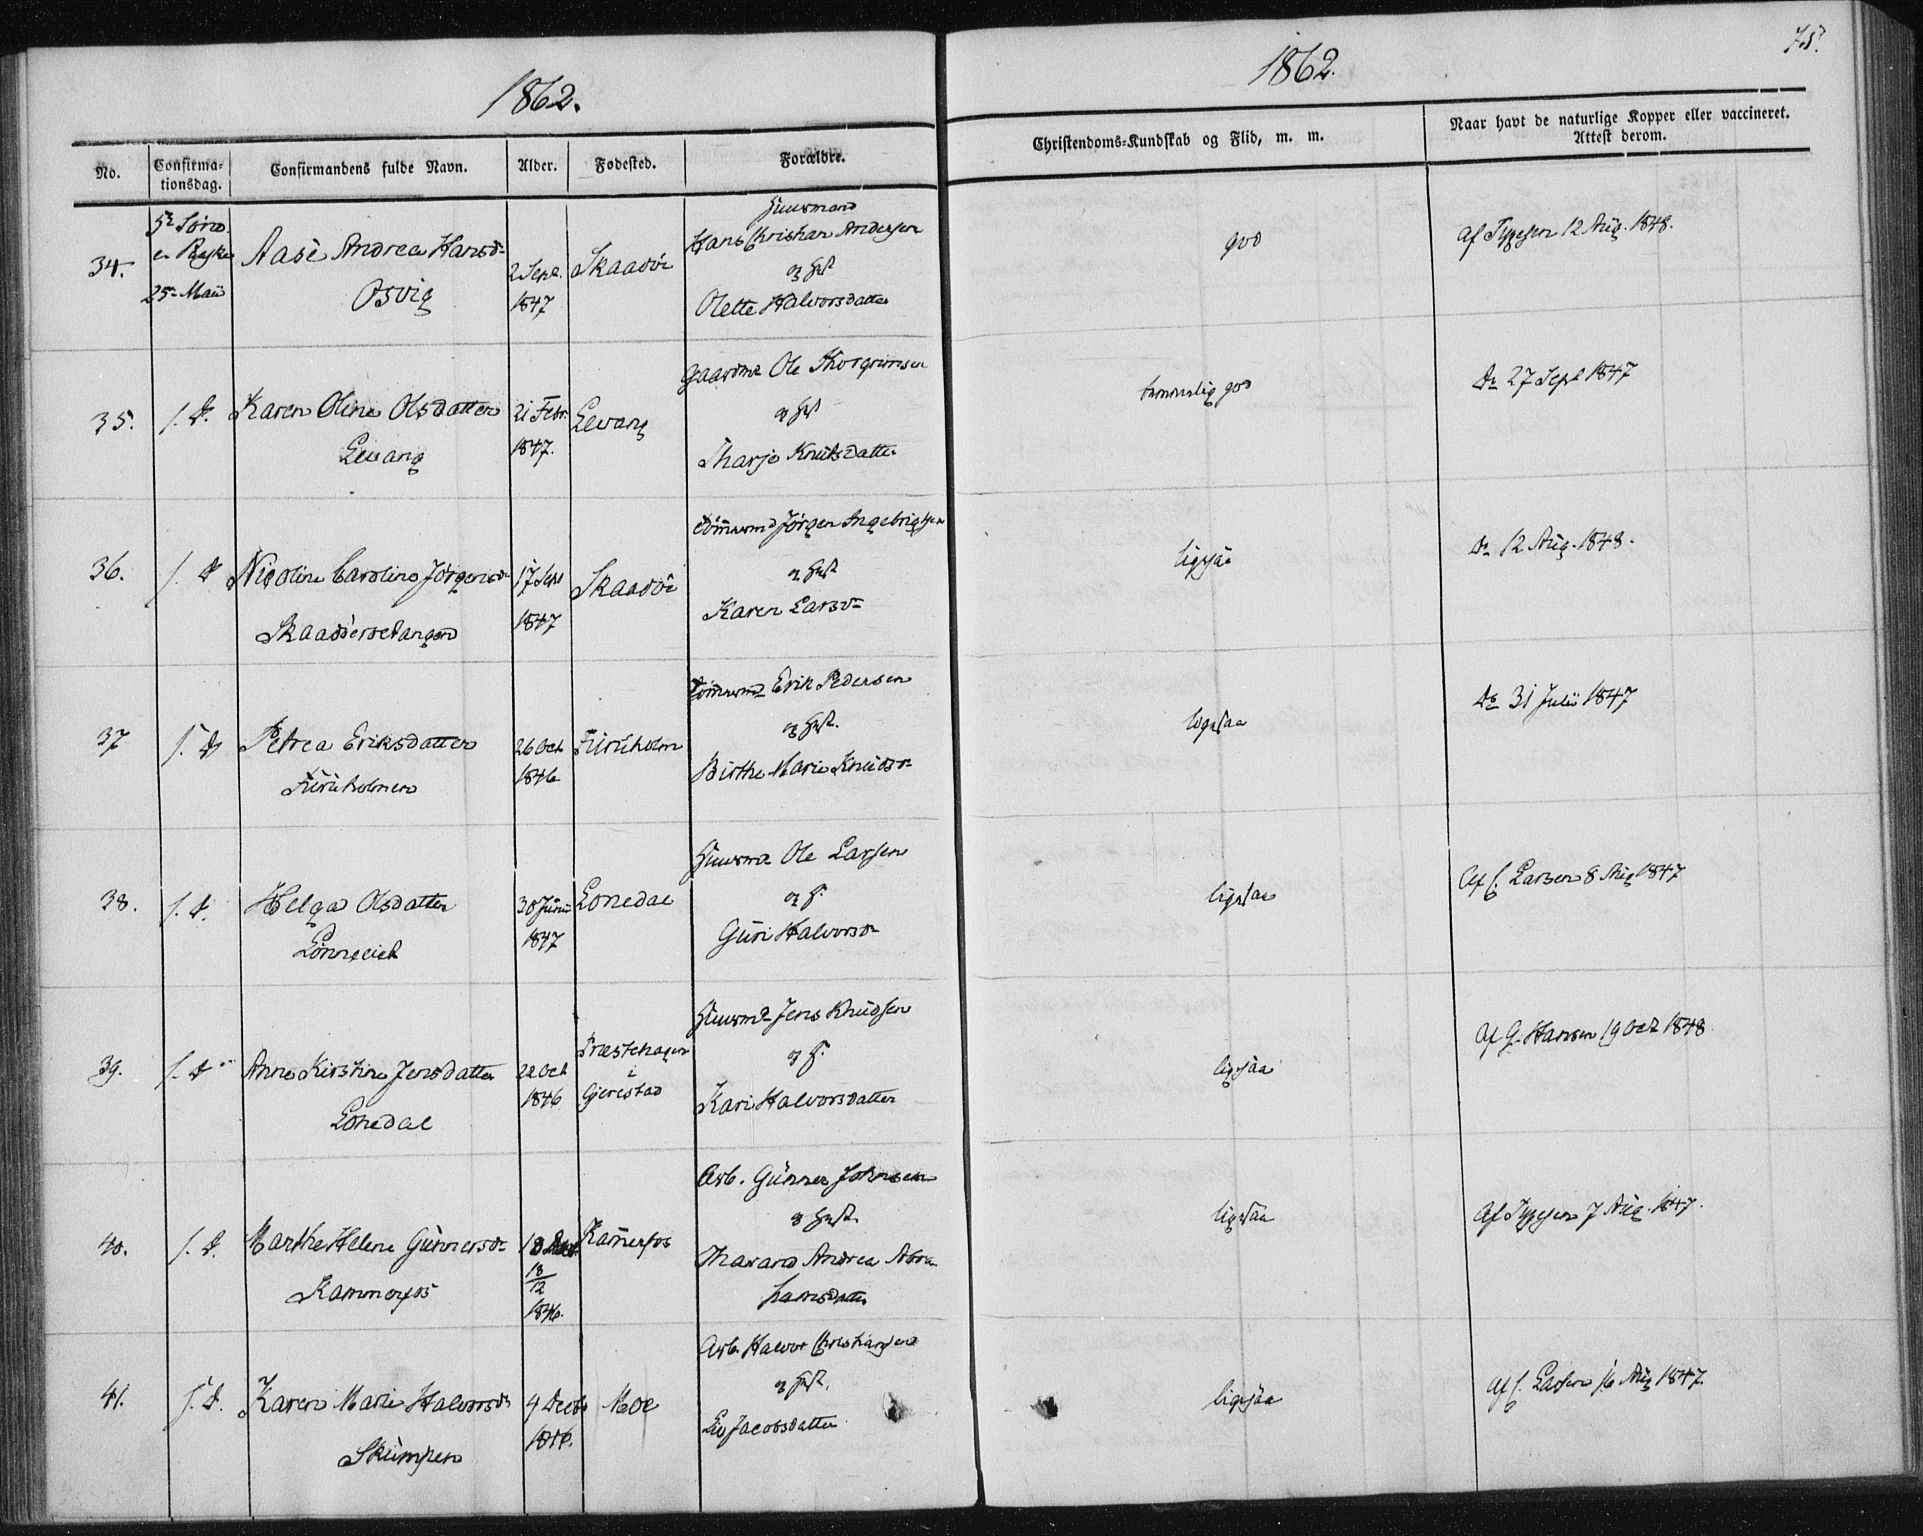 1862.
1862.
75.
No.
Confirma-
tionsdag.
Confirmandens fulde Navn.
Alder.
Fødested.
Forældre.
Christendoms-Kundskab og Flid, m. m.
Naar havt de naturlige Kopper eller vaccineret.
Attest derom.
34.
5te Sønd.
e. Paaske
25 Mai
Aase Andrea Hansd
Osvig
2 Sept.
1847
Skaadø
Huusmand
Hans Christian Andersen
og Hst
Olette Halvorsdatter
god
Af Typpesen 12 Aug. 1848.
35.
s. D.
Karen Oline Olsdatter
Levang
21 Febr.
1847.
Levang
Gaardmd Ole Thorgrimsen
og Hst
Tharje Knutsdatter
temmelig god
Do 27 Sept 1847
36.
s. D
Nicoline Caroline Jørgensd
17 Sept
1847
Skaadø
Tømmermd Jørgen Ingebrigtsen
og Hst
Karen Larsd
ligesaa
Do 12 Aug. 1848.
37
s. D
Petrea Eriksdatter
Furuholmen
26 Oct
1846
Furuholm
Tømmermd Erik Pedersen
og Hst.
Birthe Marie Knudsd
ligesaa
Do 31 Juli 1847
38.
s. D.
Helga Olsdatter
30 Juni
1847
Lonedal
Huusmd Ole Larsen
og H.
Guri Halvorsd
ligesaa
Af C. Larsen 8 Aug 1847
39.
s. D
Anne Kirstine Jensdatter
Lonedal
22 Oct
1846
Præstehagen
i
Gjerestad
Huusmd Jens Knudsen
og H.
Kari Halvorsdatter
ligesaa
Af G. Hansen 19 Oct 1848
40.
s. D.
Marthe Helene Gunnersd
Kammerfos
18
18
12
1846.
Kamerfos
Arb. Gunner Johnsen
og Hst.
Tharand Andrea Abra
hamsdatter
ligesaa
Af Typpesen 7 Aug. 1847.
41.
s. D.
Karen Marie Halvorsd
Skumpen
4 Decbr
1846.
Moe
Arb. Halvor Christiansen
og Hst.
Liv Jacobsdatter
ligesaa
Af C. Larsen 16 Aug 1847.